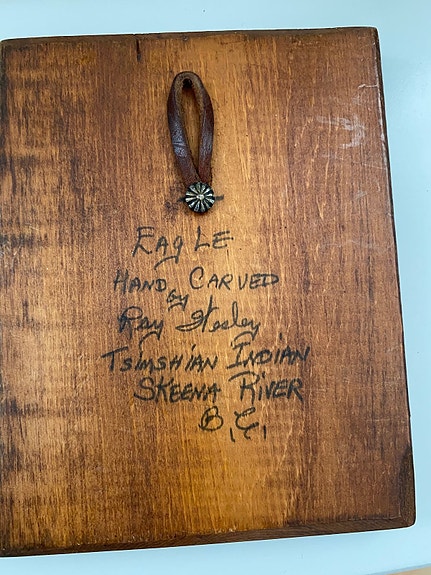 EagLE
HAND CARVED
by
Ray Wesley
TSIMSHIAN INDIAN
SKEENA RIVER
B.C.